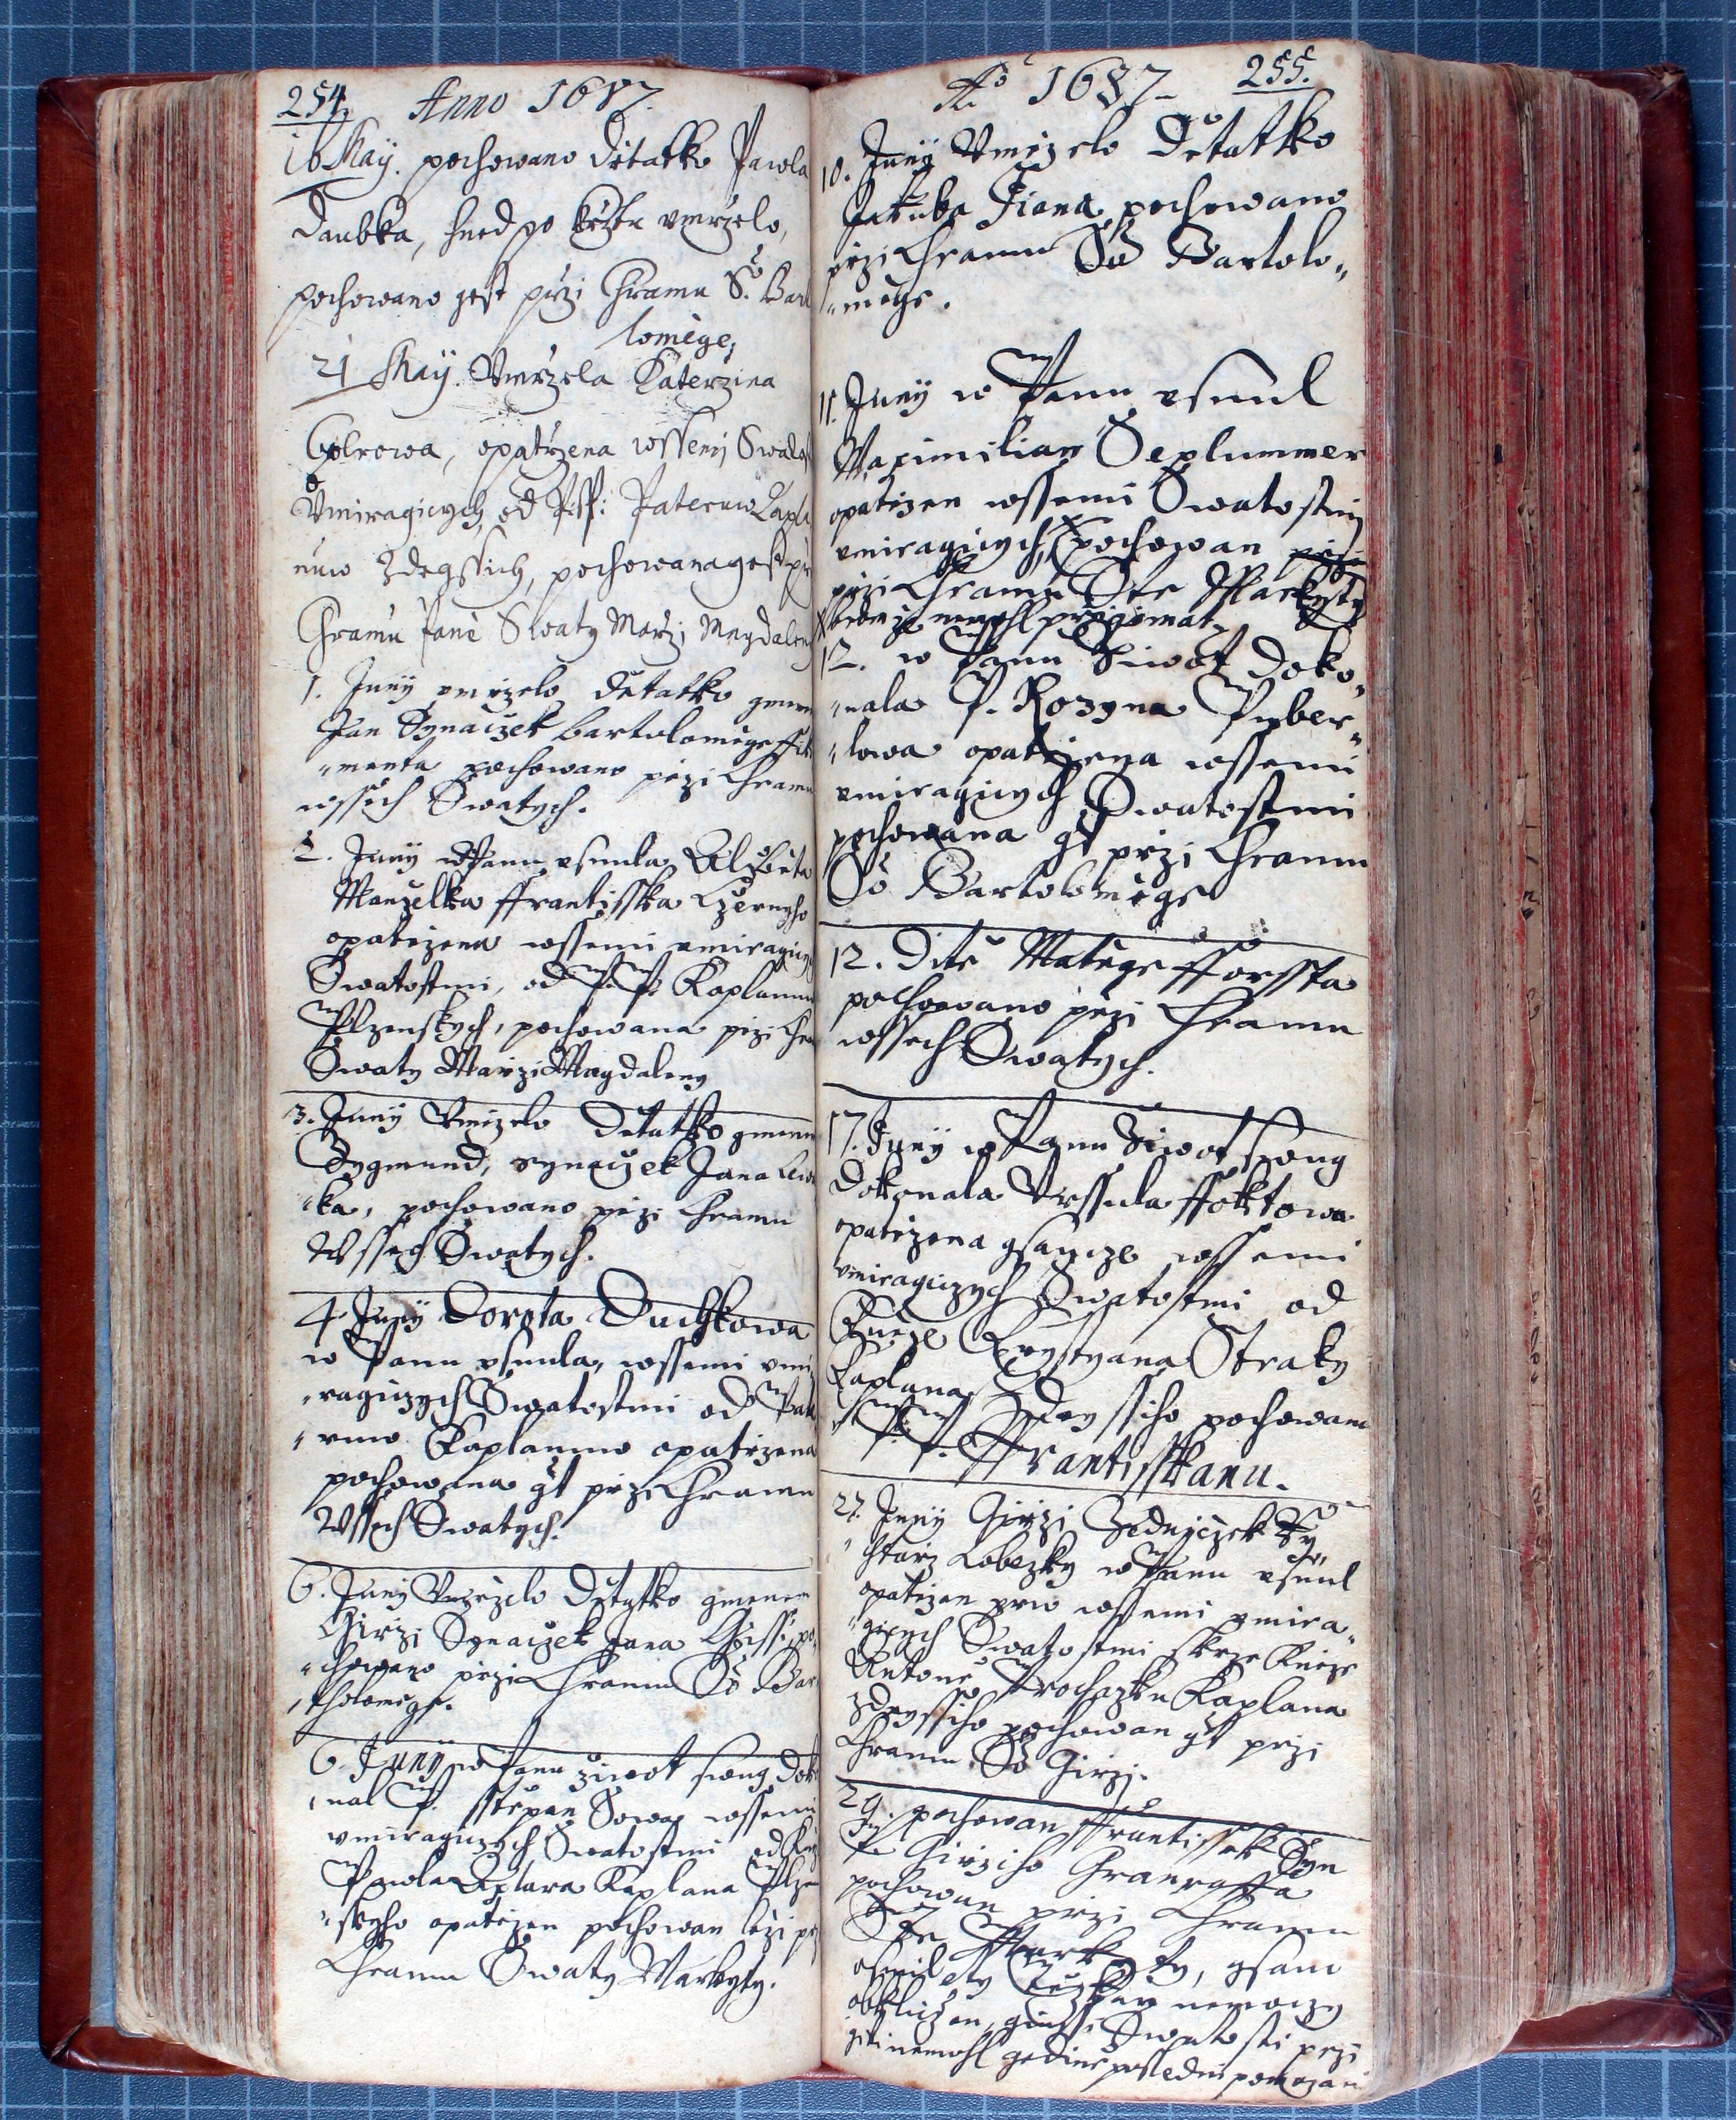 254 Anno 1687.
16 Maÿ. pochowano dětatko Pawla
Daubka, hned po krztu vmrzelo,
pochowano gest przi Chramu S. Bar
loměge,
21 Maÿ. Vmrzela Katerzina
opatrzena wssemi Swatost
Vmiragicych, od Paterůw Kapla
nuw Zdegssich, pochowana gest przi
Chramu Pane Swaty Marzi Magdaleny
1. Junÿ vmrzelo dětatko gmenem
Jan Synaczek Bartolomiege
"menta pochowano przi Chramu
wssech Swatych.
2. Junÿ w Panu vsnula Alzbieta
Manzelka Frantisska Czerneho
opatrzena wssemi vmiragicy
Swatostmi, od P. P. Kaplanuw
Plzenskych, pochowana przi Chra
Swaty Marzi Magdaleny
3. Junÿ Vmrzelo Dětatko gmenem
Zygmund, synaczek Jana
"ka, pochowano przi Chramu
Wssech Swatych.
4. Junÿ Dorota Duchkowa
w Panu vsnula, wssemi vmi
"ragiczych Swatostmi od Pate
"ruw Kaplanuw opatrzena
pochowana gt przi Chramu
Wssech Swatych.
6. Junÿ Vmrzelo Dětatko gmenem
Girzi Synaczek Jana po
"chowano przi Chramu So Bar
"tholomege.
6. Junÿ w Panu ziwot swug doko
"nal P. Sstěpan Sowa wssemi
vmiragiczych Swatostmi od Knize
Pawla Kaplana Plzen
"skyho opatrzen pochowan lezi przi
Chramu Swaty Markyty.
Ao 1687 255.
10. Junÿ Vmrzelo Dětatko
Jakuba Fiana pochowano
przi Chramu So Bartolo"
"měge.
11. Junÿ w Panu vsnul
Maximilian Seplummer
opatrzen wssemi Swatostmi
vmiragicych, pochowan przi
przi Chramu Ste Markyty
nemohl przigimat
12. w Panu Ziwot doko"
"nala P. Rozyna Puber"
"lowa opatrzena wssemi
vmiragicych Swatostmi
pochowana gt przi Chramu
So Bartoloměge
12. Dite Matege Forssta
pochowano przi Chramu
wssech Swatych.
17. Junÿ w Panu Ziwot swug
dokonala Vrssula Foktowa
opatrzena gsaucze wssemi
vmiragiczych Swatostmi od
Kneze Krystyana Straky
Kaplana Zdeyssiho pochowana
v P. P. Frantisskanu.
27. Junÿ Girzi Zedniczek Ry"
"chtarz Lobezky w Panu vsnul
opatrzen prw wssemi vmira"
"gicych Swatostmi skrze Kneze
Antone Prochazku Kaplana
zdeyssiho pochowan gt przi
Chramu So Girzi.
29. pochowan Frantissek Syn
P. Girziho Granraffa
pochowan przi Chramu
Ste Markety, gsauc
osmilety nemoczy
obkliczen, ginssi Swatosti przi
giti nemohl gedine posledni pomazani